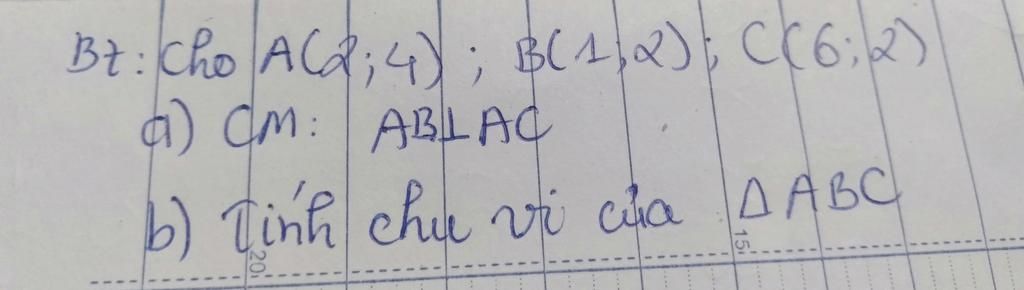 Bt: Cho A(2;4); B(1;2); C(6;2)
a) CM: AB⊥AC
b) Tính chu vi của ΔABC
20
15